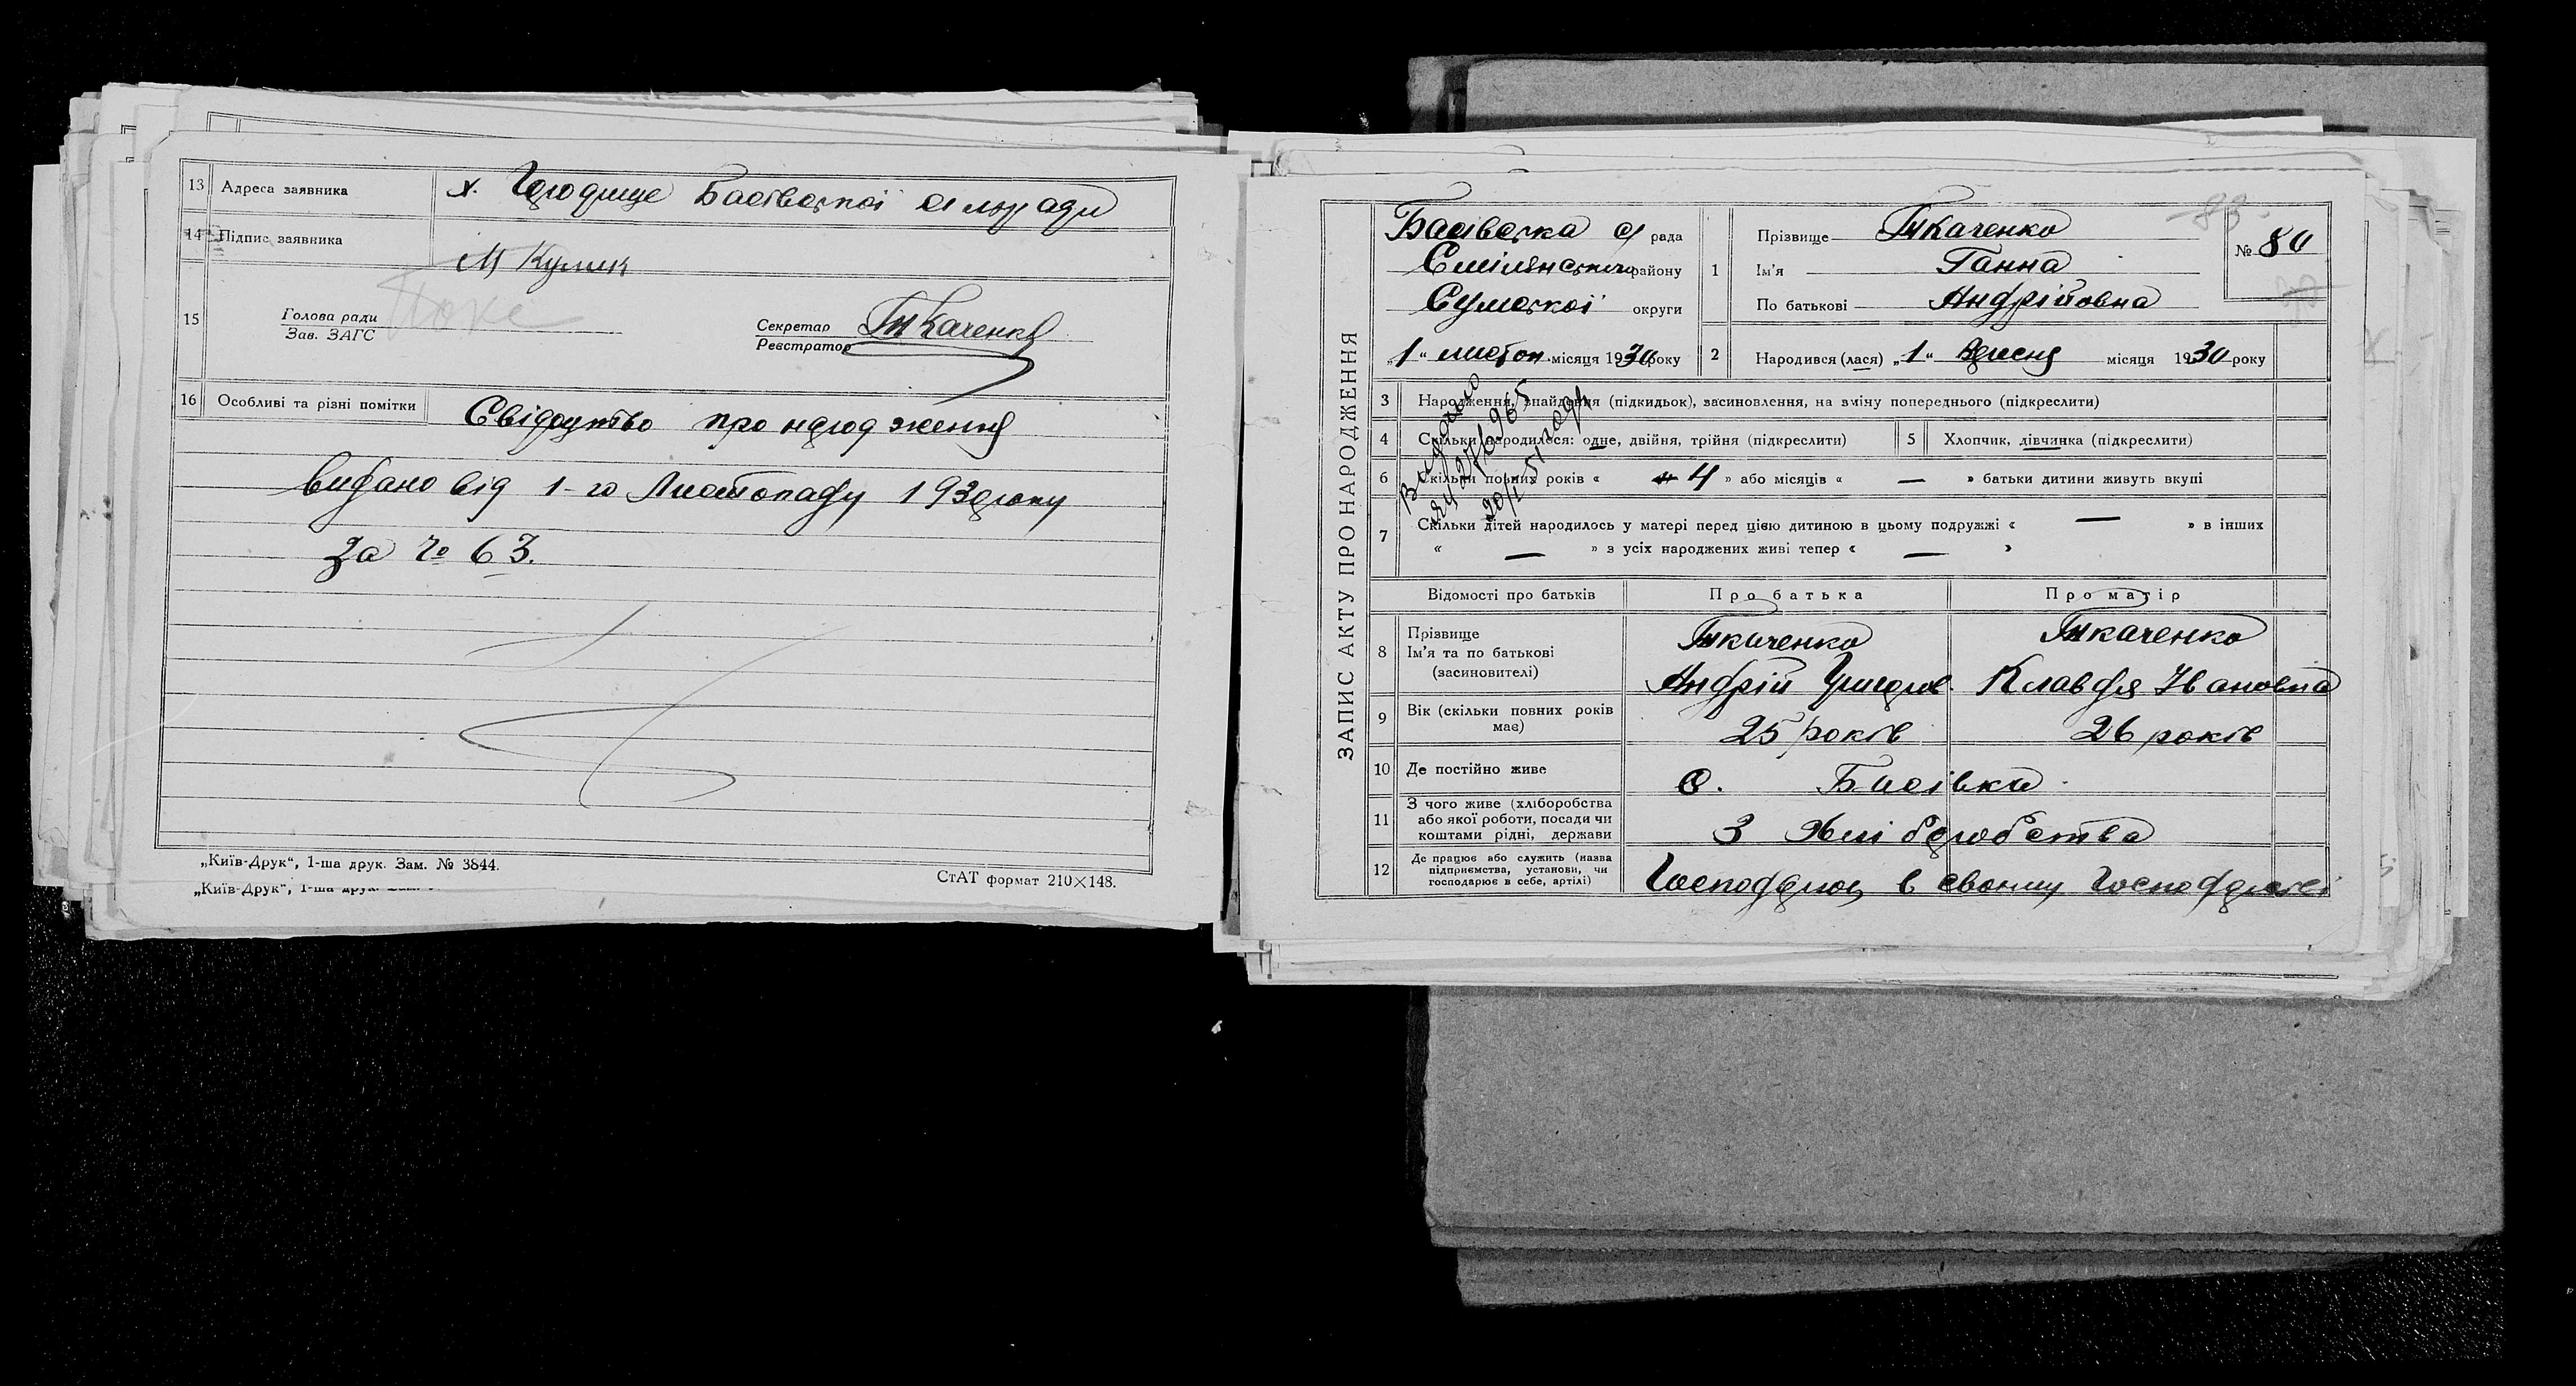 13 Адреса заявника х. Городище Басівської сільради
14 Підпис заявника М Кулик
15 Голова ради
Зав. ЗАГС
Секретар Ткаченко
Реєстратор
16 Особливі та різні помітки Свідоцтво про народження
видано від 1-го Листопаду 1930 року
за № 63.
„Київ-Друк“, 1-ша друк. Зам. № 3844.
СтАТ формат 210×148.
„Київ-Друк“, 1-ша друк.
ЗАПИС АКТУ ПРО НАРОДЖЕННЯ
Басівська с/рада
району
Сумської округи
„1“ листоп. місяця 1930 року
1 Прізвище Ткаченко
Ім'я Ганна
По батькові Андрійовна
83
№ 80
2 Народився (лася) „1“ Вересня місяця 1930 року
3 Народження, знайдення (підкидьок), засиновлення, на зміну попереднього (підкреслити)
4 Скільки народилося: одне, двійня, трійня (підкреслити)
5 Хлопчик, дівчинка (підкреслити)
6 Скільки повних років « 4 » або місяців « — » батьки дитини живуть вкупі
7 Скільки дітей народилось у матері перед цією дитиною в цьому подружжі « — » в інших
« — » з усіх народжених живі тепер « — »
Відомості про батьків Про батька Про матір
8 Прізвище Ткаченко Ткаченко
Ім'я та по батькові
(засиновителі) Андрій Григоров. Клавдя Івановна
9 Вік (скільки повних років має) 25 років 26 років
10 Де постійно живе с. Басівка
11 З чого живе (хліборобства
або якої роботи, посади чи
коштами рідні, держави З Хліборобства
12 Де працює або служить (назва
підприємства, установи, чи
господарює в себе, артілі) Господарює в своєму Господарстві